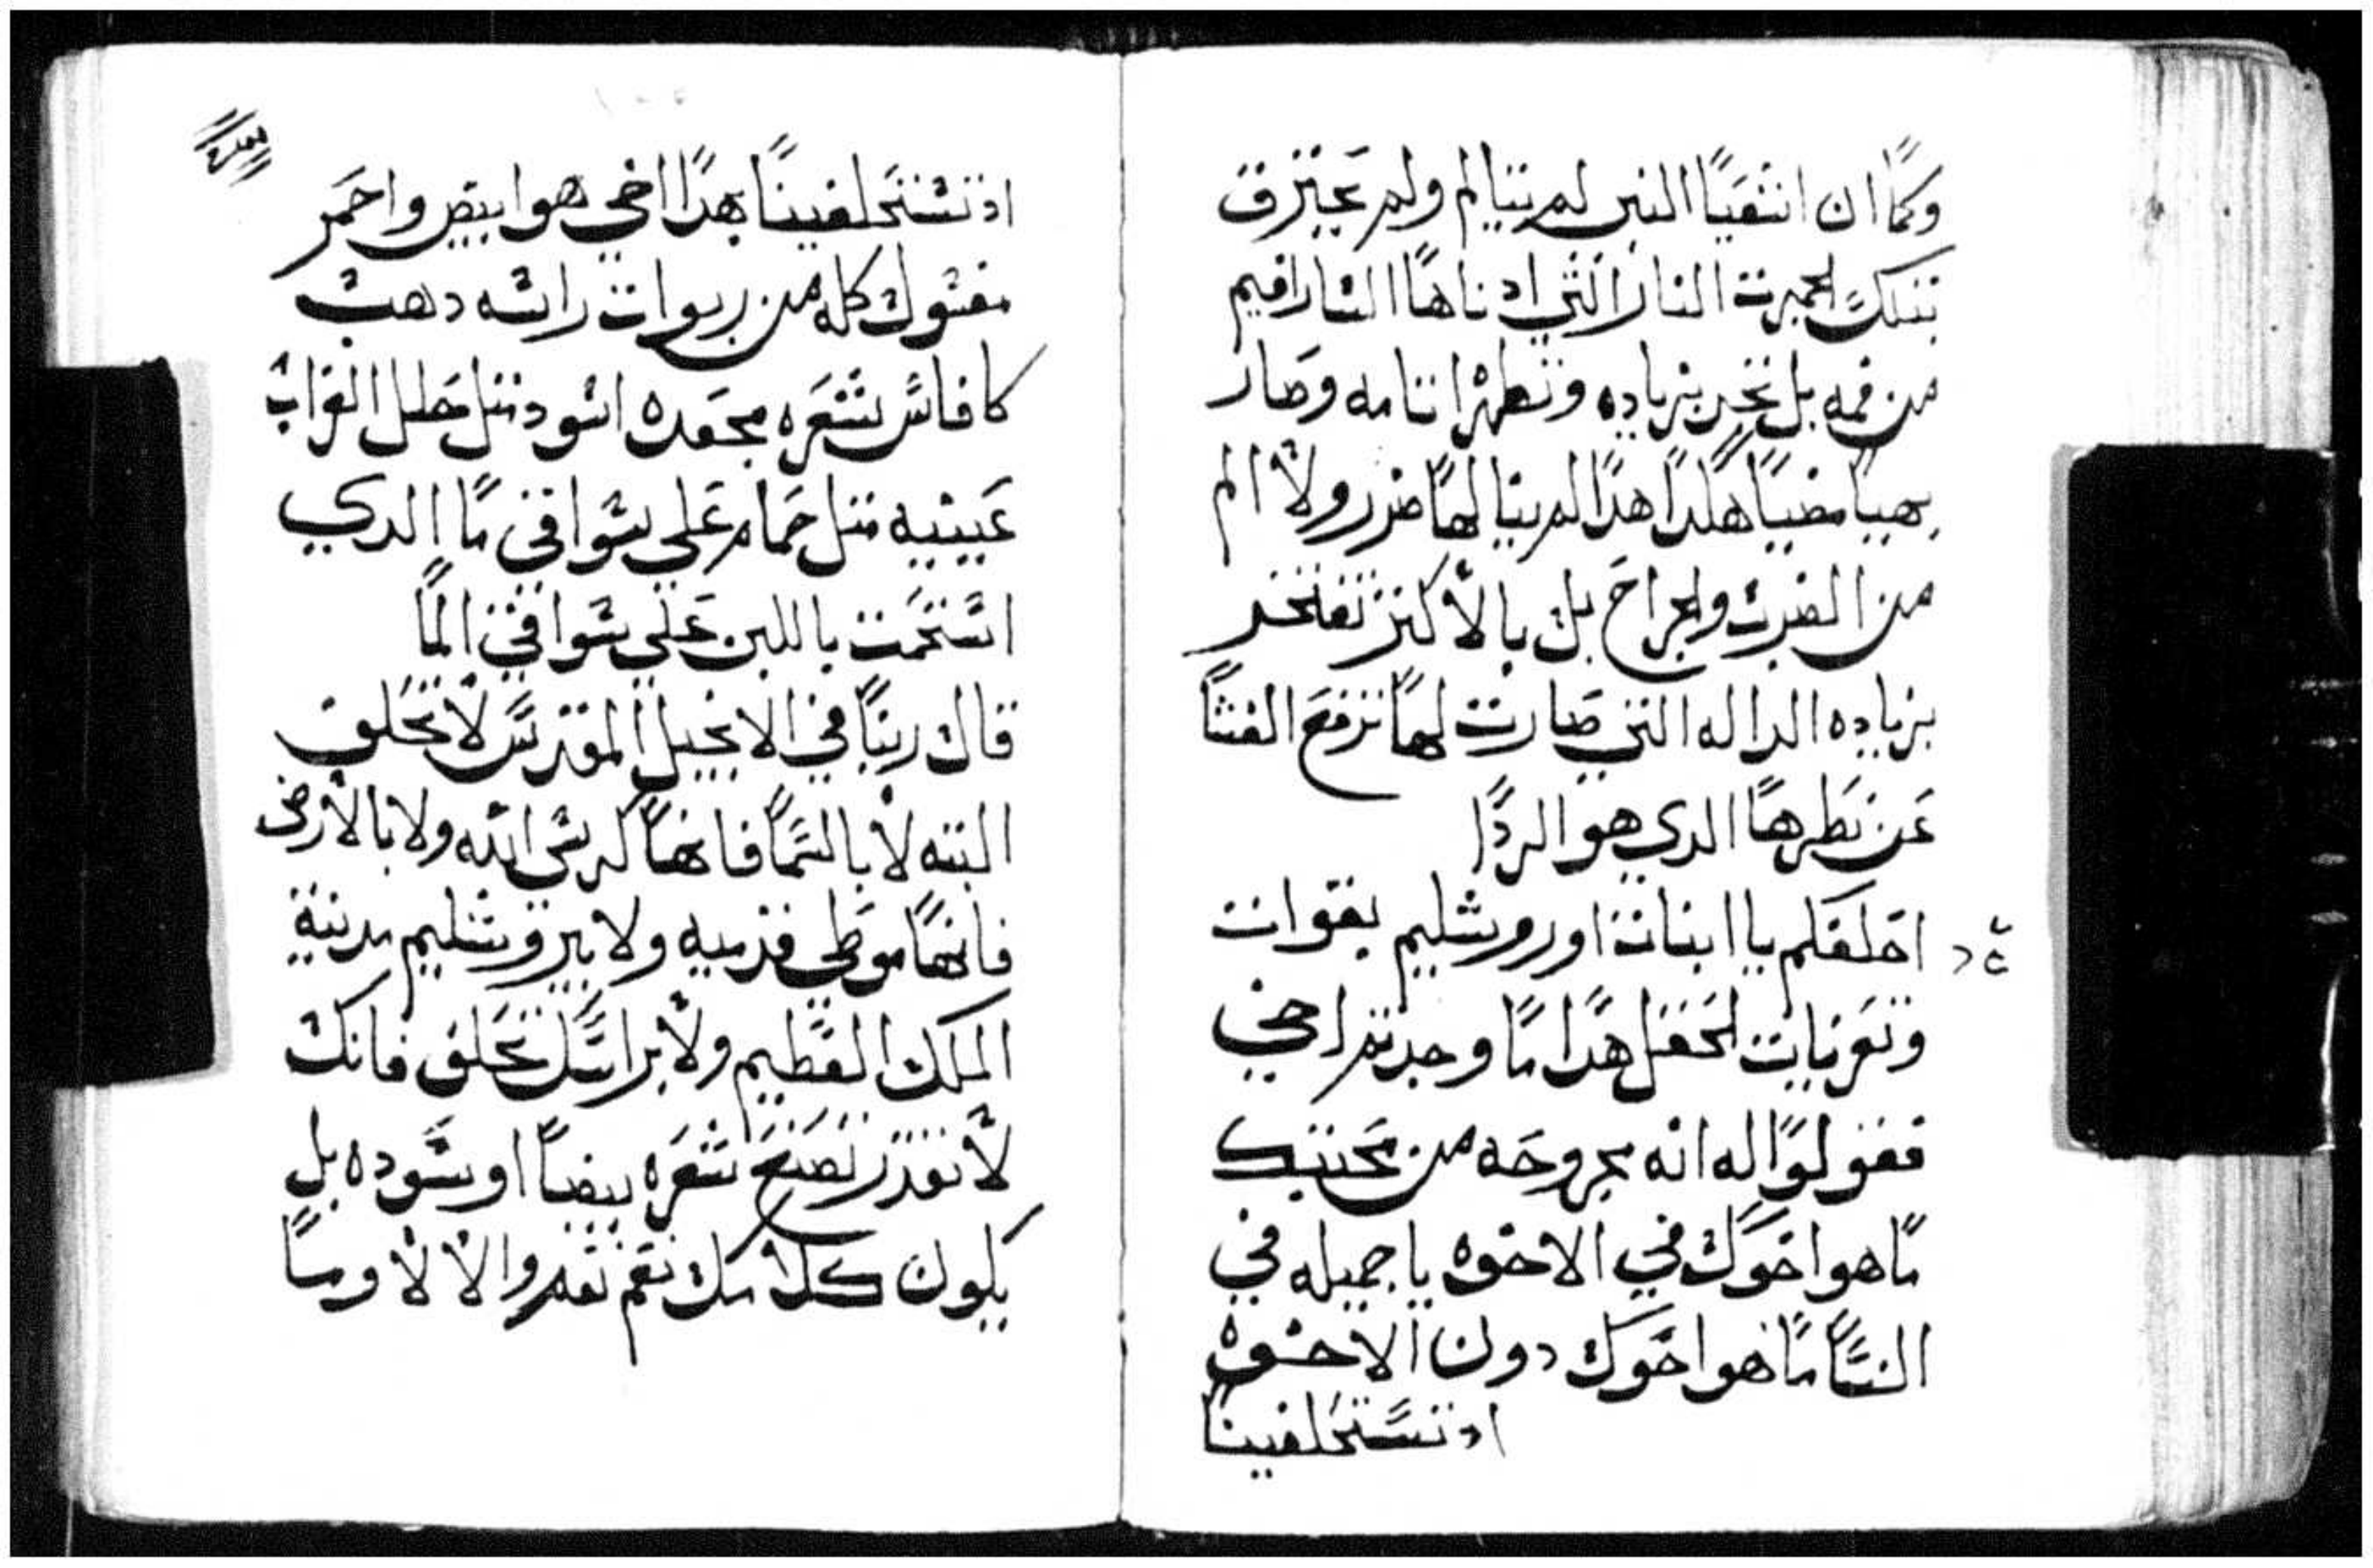 وكما ان اشعيا النبي لم يتالم ولم يحترق
بتلك الجمرت النار التي ادناها الشارافيم
من فمه بل تحن بزياده وتطهر اتامه وصار
بهيا مضيا هلدا هدا لم ينالها ضرر ولا الم
من الضرب والجراح بل بالأكتر تفتخر
بزياده الداله التي صارت لها نزفع الغشا
عن نظرها الدي هو الردا
احلفكم يا ابنات اوروشليم بقوات
وتعزيات الحقل هدا ما وجدتم اخي
فقولوا له انه مجروحه من محبتك
ما هو اخوك في الاخوه يا جميله في
النسا ما هو اخوك دون الاخوه
اد تستحلفينا
اد تستحلفينا بهدا اخي هو ابيض واحمر
مفتوك كله من ربوات راسه دهب
كافاس شعره مجعده اسود متل حطل الغراب
عينيه متل حمام علي سواقي ما الدي
استحمت باللبن علي سواقي الما
قال ربنا في الانجيل المقدس لا تحلف
البته لا بالسما فانها كرسي الله ولا بالأرض
فانها موطي قدميه ولا بيروشليم مدينة
الملك العظيم ولا براسك تحلف فانك
لا تقدر تصنع شعره بيضا او سوده بل
يكون كلامك نعم نعم والا لا وما